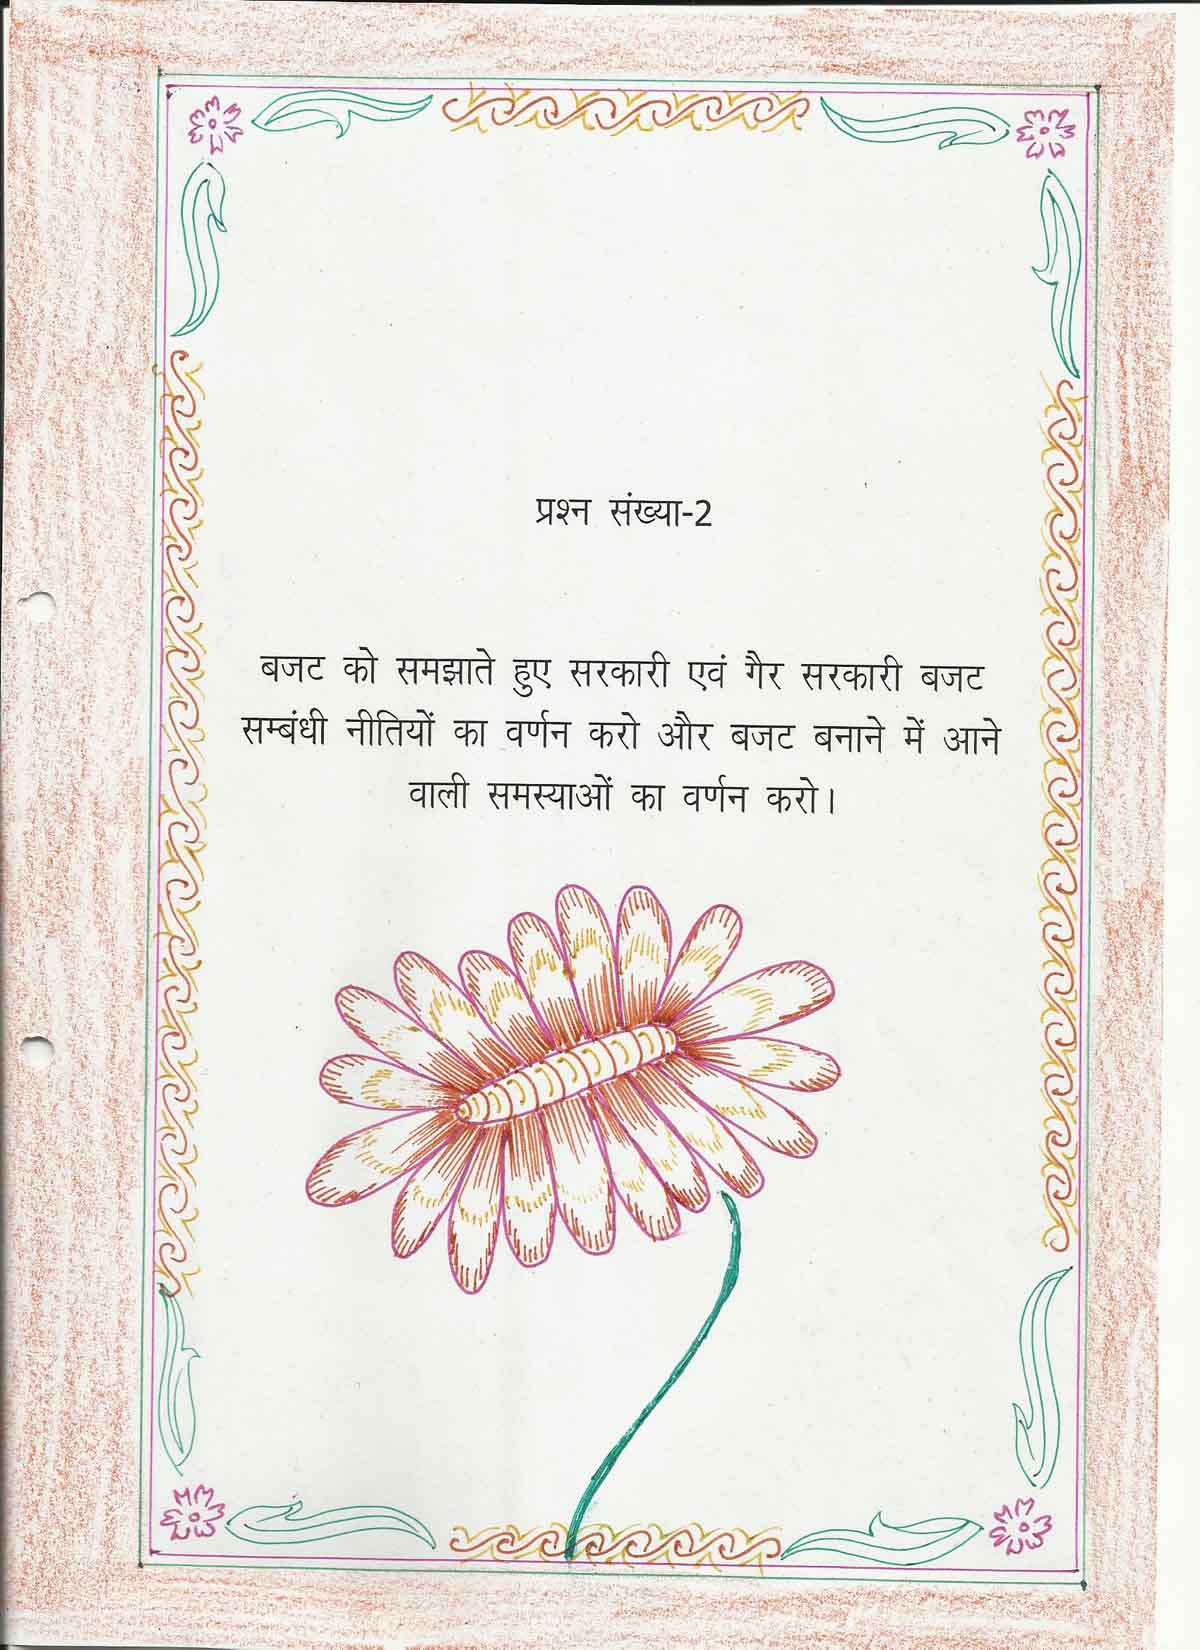 प्रश्न संख्या-2
बजट को समझाते हुए सरकारी एवं गैर सरकारी बजट
सम्बंधी नीतियों का वर्णन करो और बजट बनाने में आने
वाली समस्याओं का वर्णन करो।